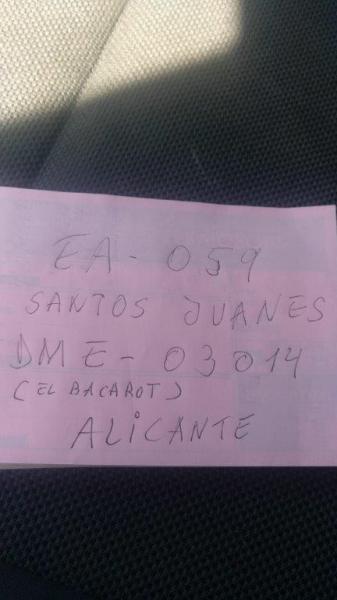 EA - 059
SANTOS JUANES
DME - 03014
(EL BACAROT)
ALiCANTE